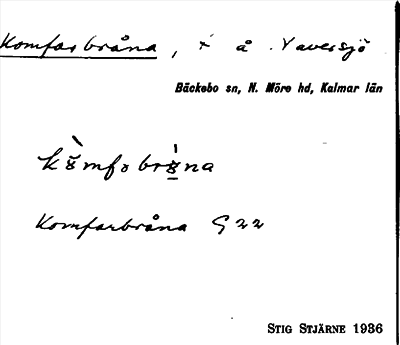 Komfarbråna, å Yaversjö
Bäckebo sn, N. Möre hd, Kalmar län
Komfarbråna G 22
STIG STJÄRNE 1936